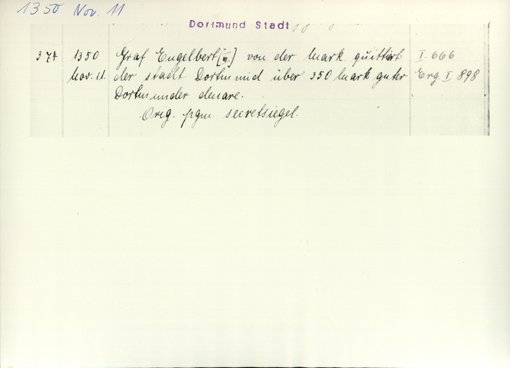 1350 Nov. 11
Dortmund Stadt
371 1350 Graf Engelbert von der Mark quittiert I. 666
Nov. 11 der Stadt Dortmund über 350 Mark guter Erg I, 898
Dortmunder denare.
Orig. pgm secretsiegel.